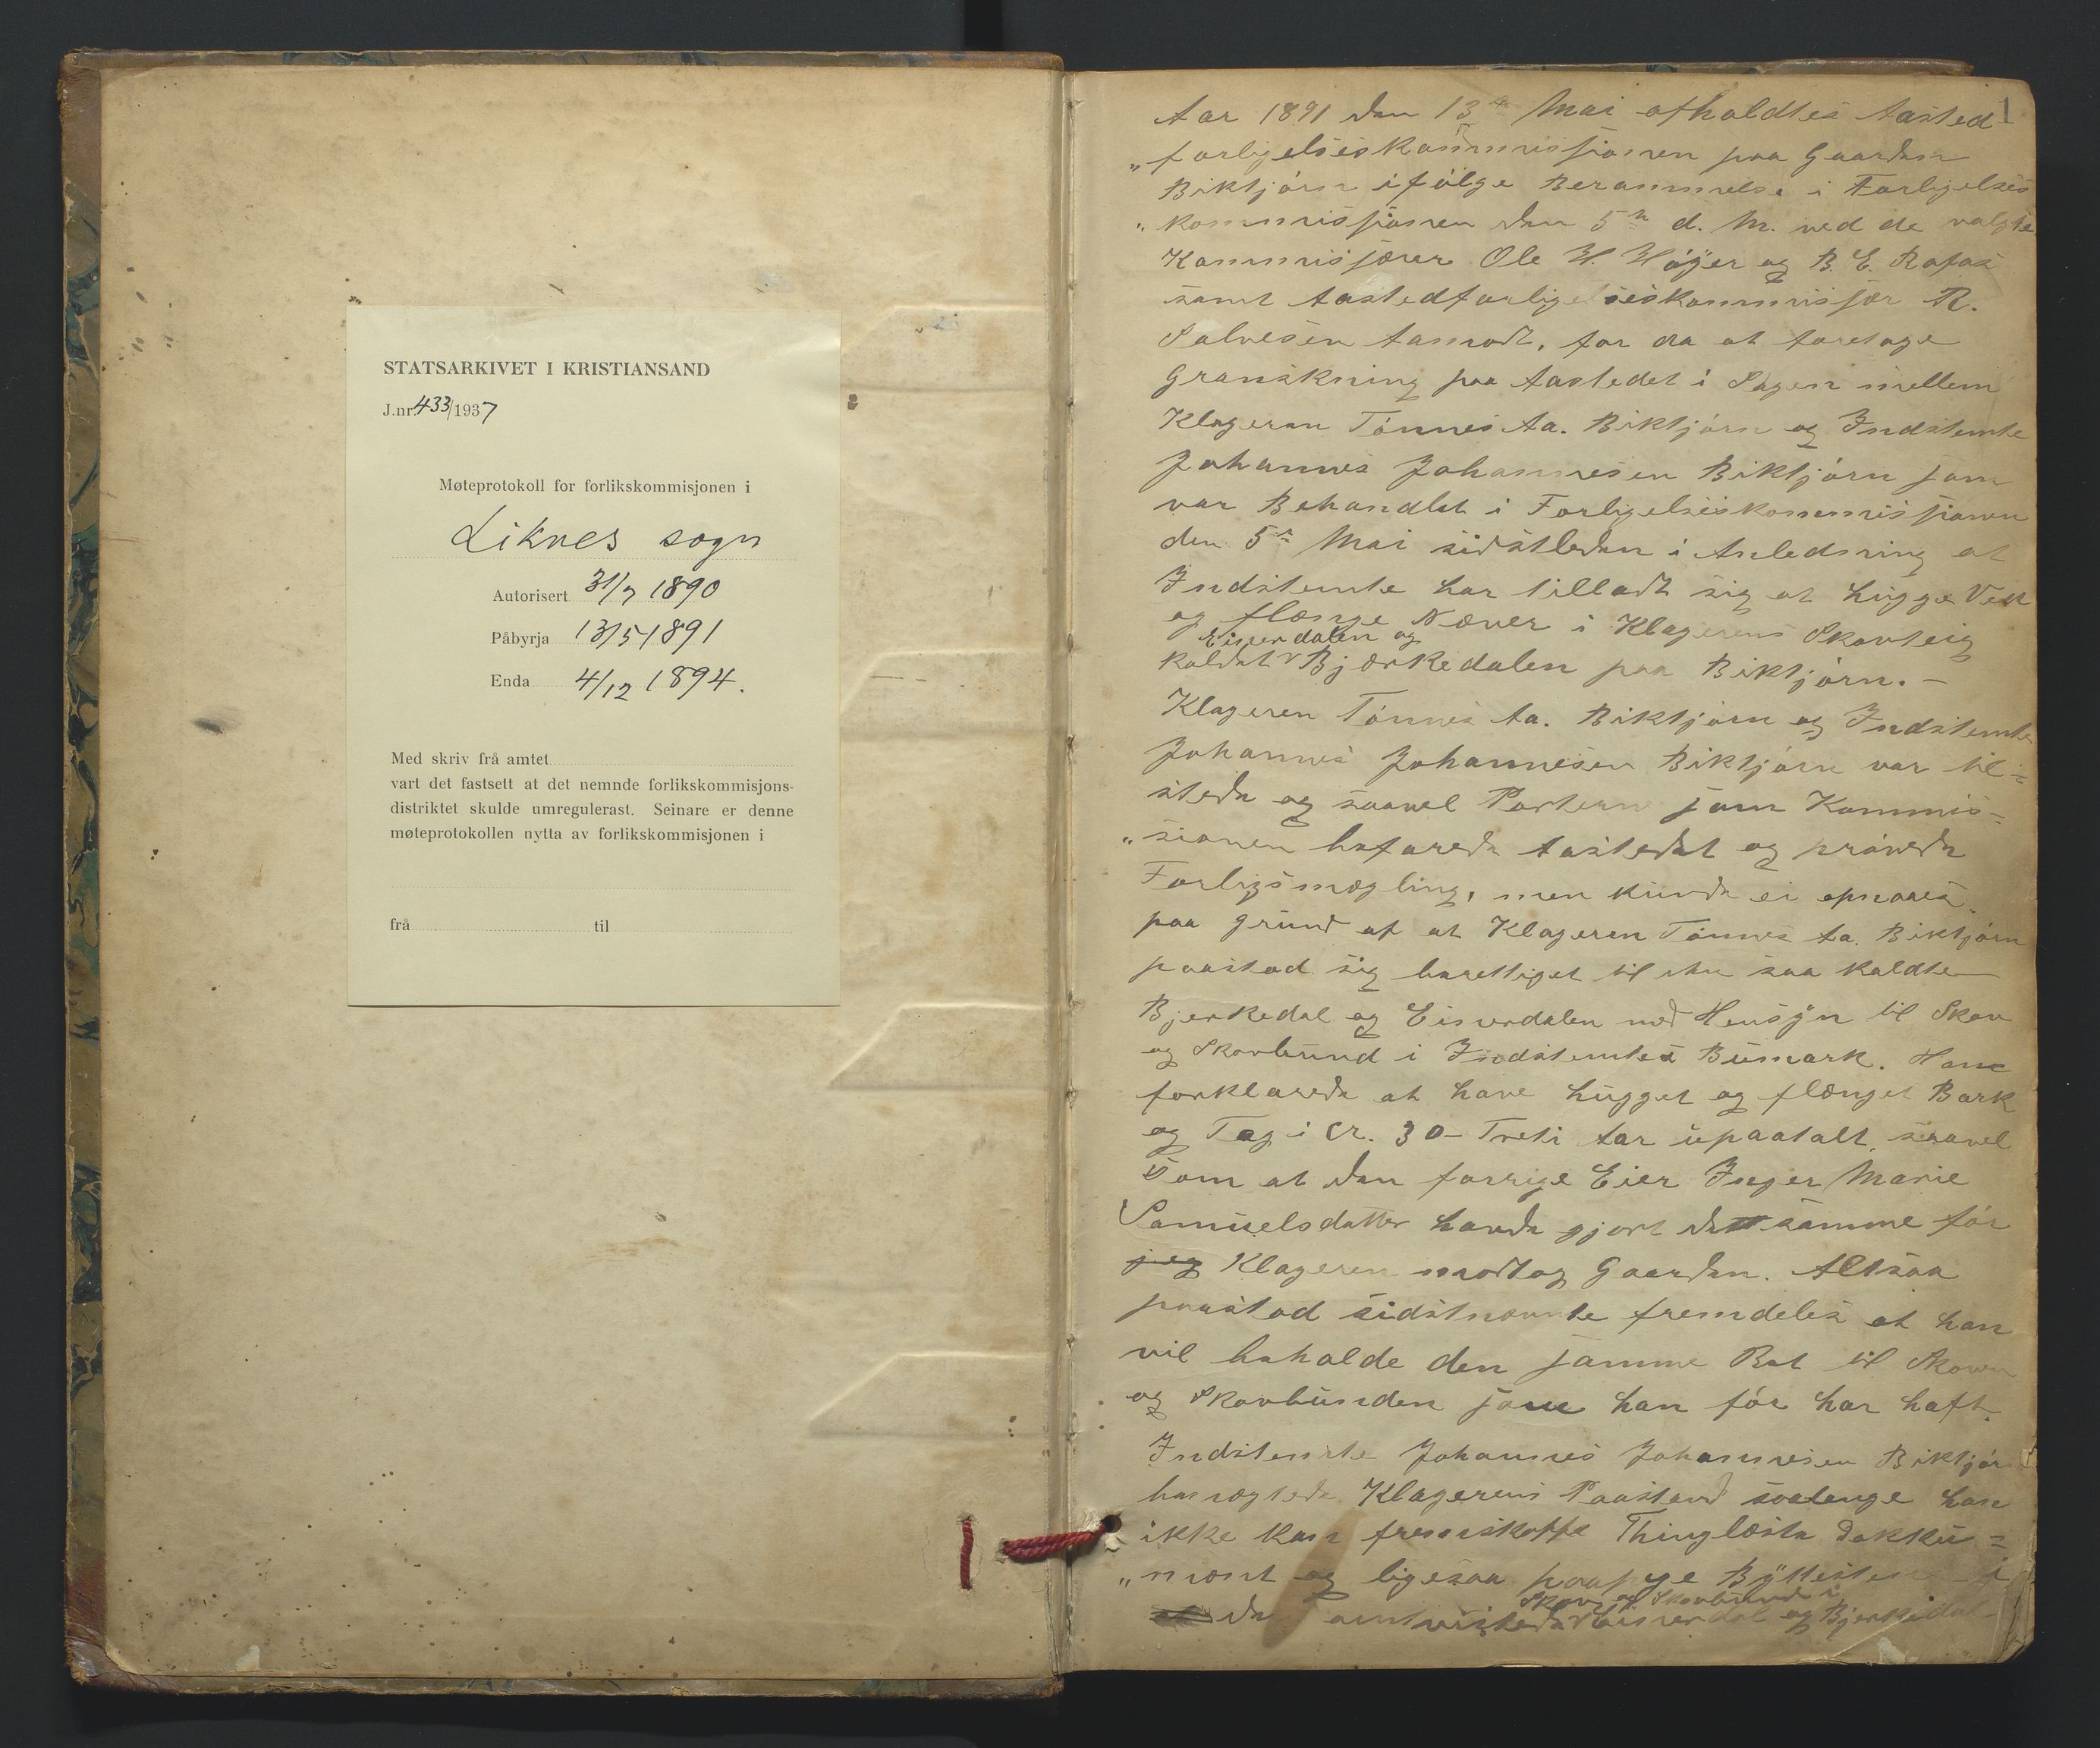 STATSARKIVET I KRISTIANSAND
J.nr. 433/1937
Møteprotokoll for forlikskommisjonen i
Liknes sogn
Autorisert 31/7 1890
Påbyrja 13/5 1891
Enda 4/12 1894.
Med skriv frå amtet
vart det fastsett at det nemnde forlikskommisjons-
distriktet skulde umregulerast. Seinare er denne
møteprotokollen nytta av forlikskommisjonen i
frå til
1
Aar 1891 den 13de Mai afholdtes Aasted
"forligelseskommissionen paa Gaarden
Biktjörn ifölge Berammelse i Forligelses
"kommissionen den 5te d. M. ved de valgte
Kommissærer Ole H. Höÿer og B. E. Rafos
samt Aastedforligelseskommissær R.
Salvesen Aamodt, for da at foretage
Granskning paa Aastedet i Sagen mellem
Klageren Tönnes Aa. Biktjörn og Indstemte
Johannes Johannesen Biktjörn som
var Behandlet i Forligelseskommissionen
den 5te Mai sidstleden i Anledning at
Indstemte har tilladt sig at hugge Ved
og flænge Næver i Klagerens Skovteig
Eiserdalen og
kaldet Bjærkedalen paa Biktjörn. -
Klageren Tönnes Aa. Biktjörn og Indstemte
Johannes Johannesen Biktjörn var til=
stede og saavel Parterne som Kommis=
"sionen befarede Aastedet og prövede
Forligsmægling, men kunde ei opnaaes
paa Grund af at Klageren Tönnes Aa. Biktjörn
paastod sig berettiget til den saa kaldte
Bjerkedal og Eiserdalen med Hensÿn til Skov
og Skovbund i Indstemtes Bumark. Han
forklarede at have hugget og flænget Bark
og Tag i Cr. 30 - Treti Aar upaatalt, saavel
som at den forrige Eier Inger Marie
Samuelsdatter havde gjort det samme för
jeg Klageren modtog Gaarden. Altsaa
paastod sidstnævnte fremdeles at han
vil beholde den samme Ret til Skoven
og Skovbunden som han för har haft.
Indstemte Johannes Johannesen Biktjör
benægtede Klagerens Paastand saalenge han
ikke kan fremskaffe Thinglæste Dokku=
"ment og ligesaa paa
Skov og Skovbund i
og Bjerkedal